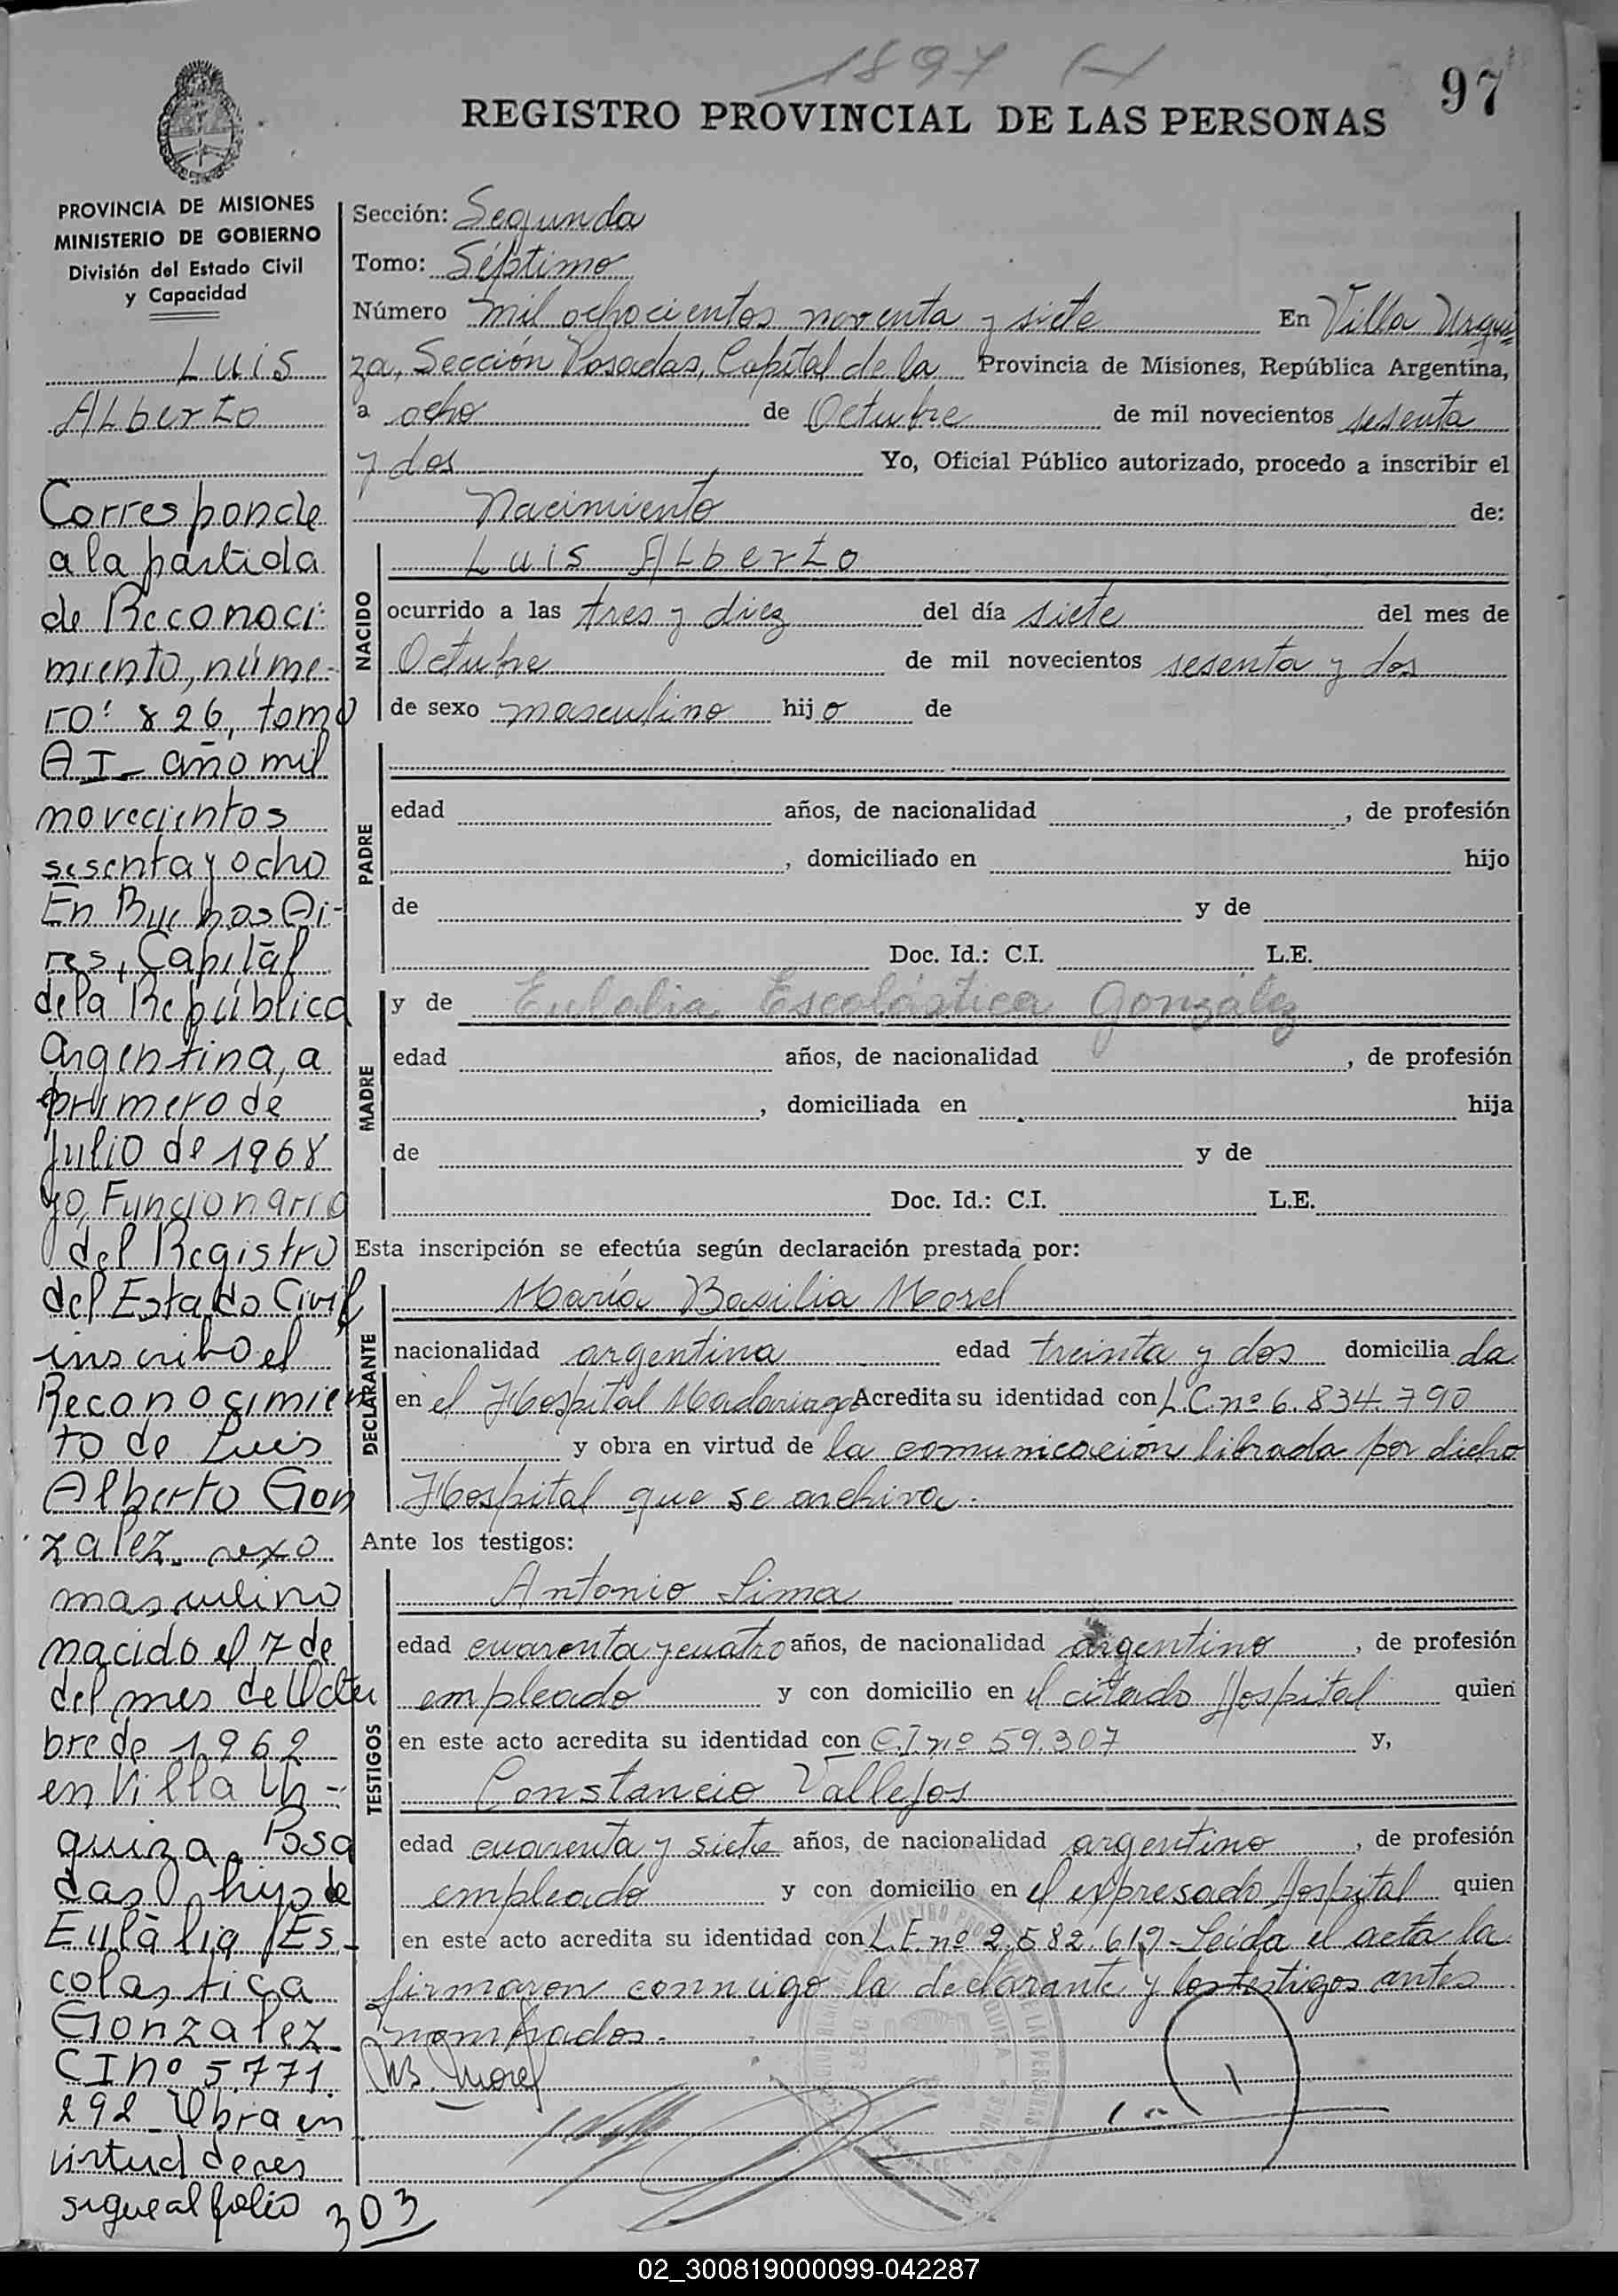 1897 (-)
97
REGISTRO PROVINCIAL DE LAS PERSONAS
PROVINCIA DE MISIONES
MINISTERIO DE GOBIERNO
División del Estado Civil
y Capacidad
Luis
Alberto
Corresponde
a la partida
de Reconoci-
miento, núme-
ro: 826, tomo
A I - año mil
novecientos
sesenta y ocho
En Buenos Ai-
res, Capital
de la República
Argentina, a
primero de
Julio de 1968
yo, Funcionario
del Registro
del Estado Civil
inscribo el
Reconocimien
to de Luis
Alberto Gon
zalez. sexo
masculino
nacido el 7 de
del mes de Octu
bre de 1962
en Villa Ur-
quiza, Posa
das, hijo de
Eulalia Es-
colastica
Gonzalez
CI nº 5.771.
292 - Obra en
virtud de
sigue al folio 303
Sección: Segunda
Tomo: Séptimo
Número mil ochocientos noventa y siete En Villa Urqui-
za, Sección Posadas, Capital de la Provincia de Misiones, República Argentina,
a ocho de Octubre de mil novecientos sesenta
y dos Yo, Oficial Público autorizado, procedo a inscribir el
Nacimiento de:
NACIDO
Luis Alberto
ocurrido a las tres y diez del día siete del mes de
Octubre de mil novecientos sesenta y dos
de sexo masculino hijo de
PADRE
edad años, de nacionalidad , de profesión
, domiciliado en hijo
de y de
Doc. Id.: C.I. L.E.
MADRE
y de Eulalia Escolástica González
edad años, de nacionalidad , de profesión
, domiciliada en hija
de y de
Doc. Id.: C.I. L.E.
Esta inscripción se efectúa según declaración prestada por:
DECLARANTE
María Basilia Morel
nacionalidad argentina edad treinta y dos domiciliada
en el Hospital Madariaga Acredita su identidad con L.C. nº 6.834.790
y obra en virtud de la comunicación librada por dicho
Hospital que se archiva.
Ante los testigos:
TESTIGOS
Antonio Lima
edad cuarenta y cuatro años, de nacionalidad argentino, de profesión
empleado y con domicilio en el citado Hospital quien
en este acto acredita su identidad con C.I. nº 59.307 y,
Constancio Vallejos
edad cuarenta y siete años, de nacionalidad argentino, de profesión
empleado y con domicilio en el expresado Hospital quien
en este acto acredita su identidad con L.E. nº 2.582.619 - Leída el acta la
firmaron conmigo la declarante y los testigos antes
nombrados.
M B. Morel
02_300819000099-042287